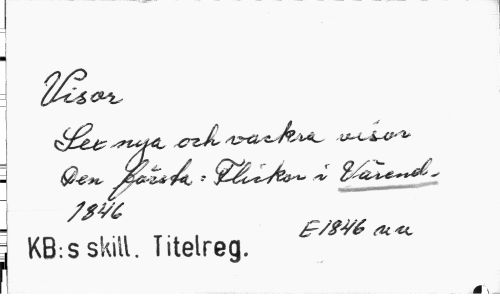 Visor
Sex nya och vackra visor
Den första: Flickor i Värend.
1846
E1846 uu
KB:s skill. Titelreg.